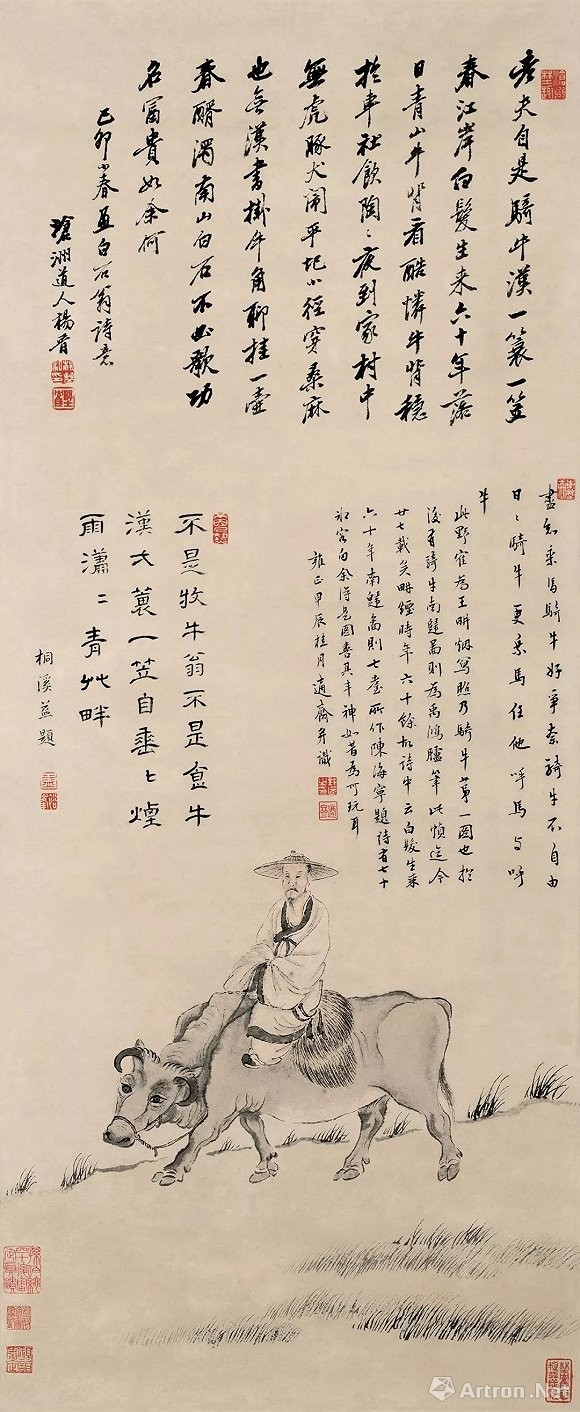 老夫自是騎牛漢一蓑一笠
春江岸白髮生來六十年落
日青山牛背看酷憐牛背穩
於車社飲陶〻夜到家村中
無虎豚犬鬧平圯小徑穿桑麻
也無漢書掛牛角聊挂一壺
春醑濁南山白石不必歌功
名富貴如余何
己卯小春畫白石翁詩意
滄洲道人楊晉
盡知乘馬騎牛好爭奈騎牛不自由
日〻騎牛更乘馬任他呼馬与呼
牛
此野崔為王畊烟寫照乃騎牛第一圖也
後有騎牛南㘣圖則為禹鴻臚筆此幀迄今
廿七載矣畊煙時年六十餘故詩中云白髮生來
六十年南圖則七耋所作陳海寧題詩有七十
向余得是圖喜其丰神如昔為可玩耳
雍正甲辰桂月適齋并識
不是牧牛翁不是食牛
漢大蓑一笠自垂〻煙
雨瀟〻青艸畔
桐溪益題
Artron.Net